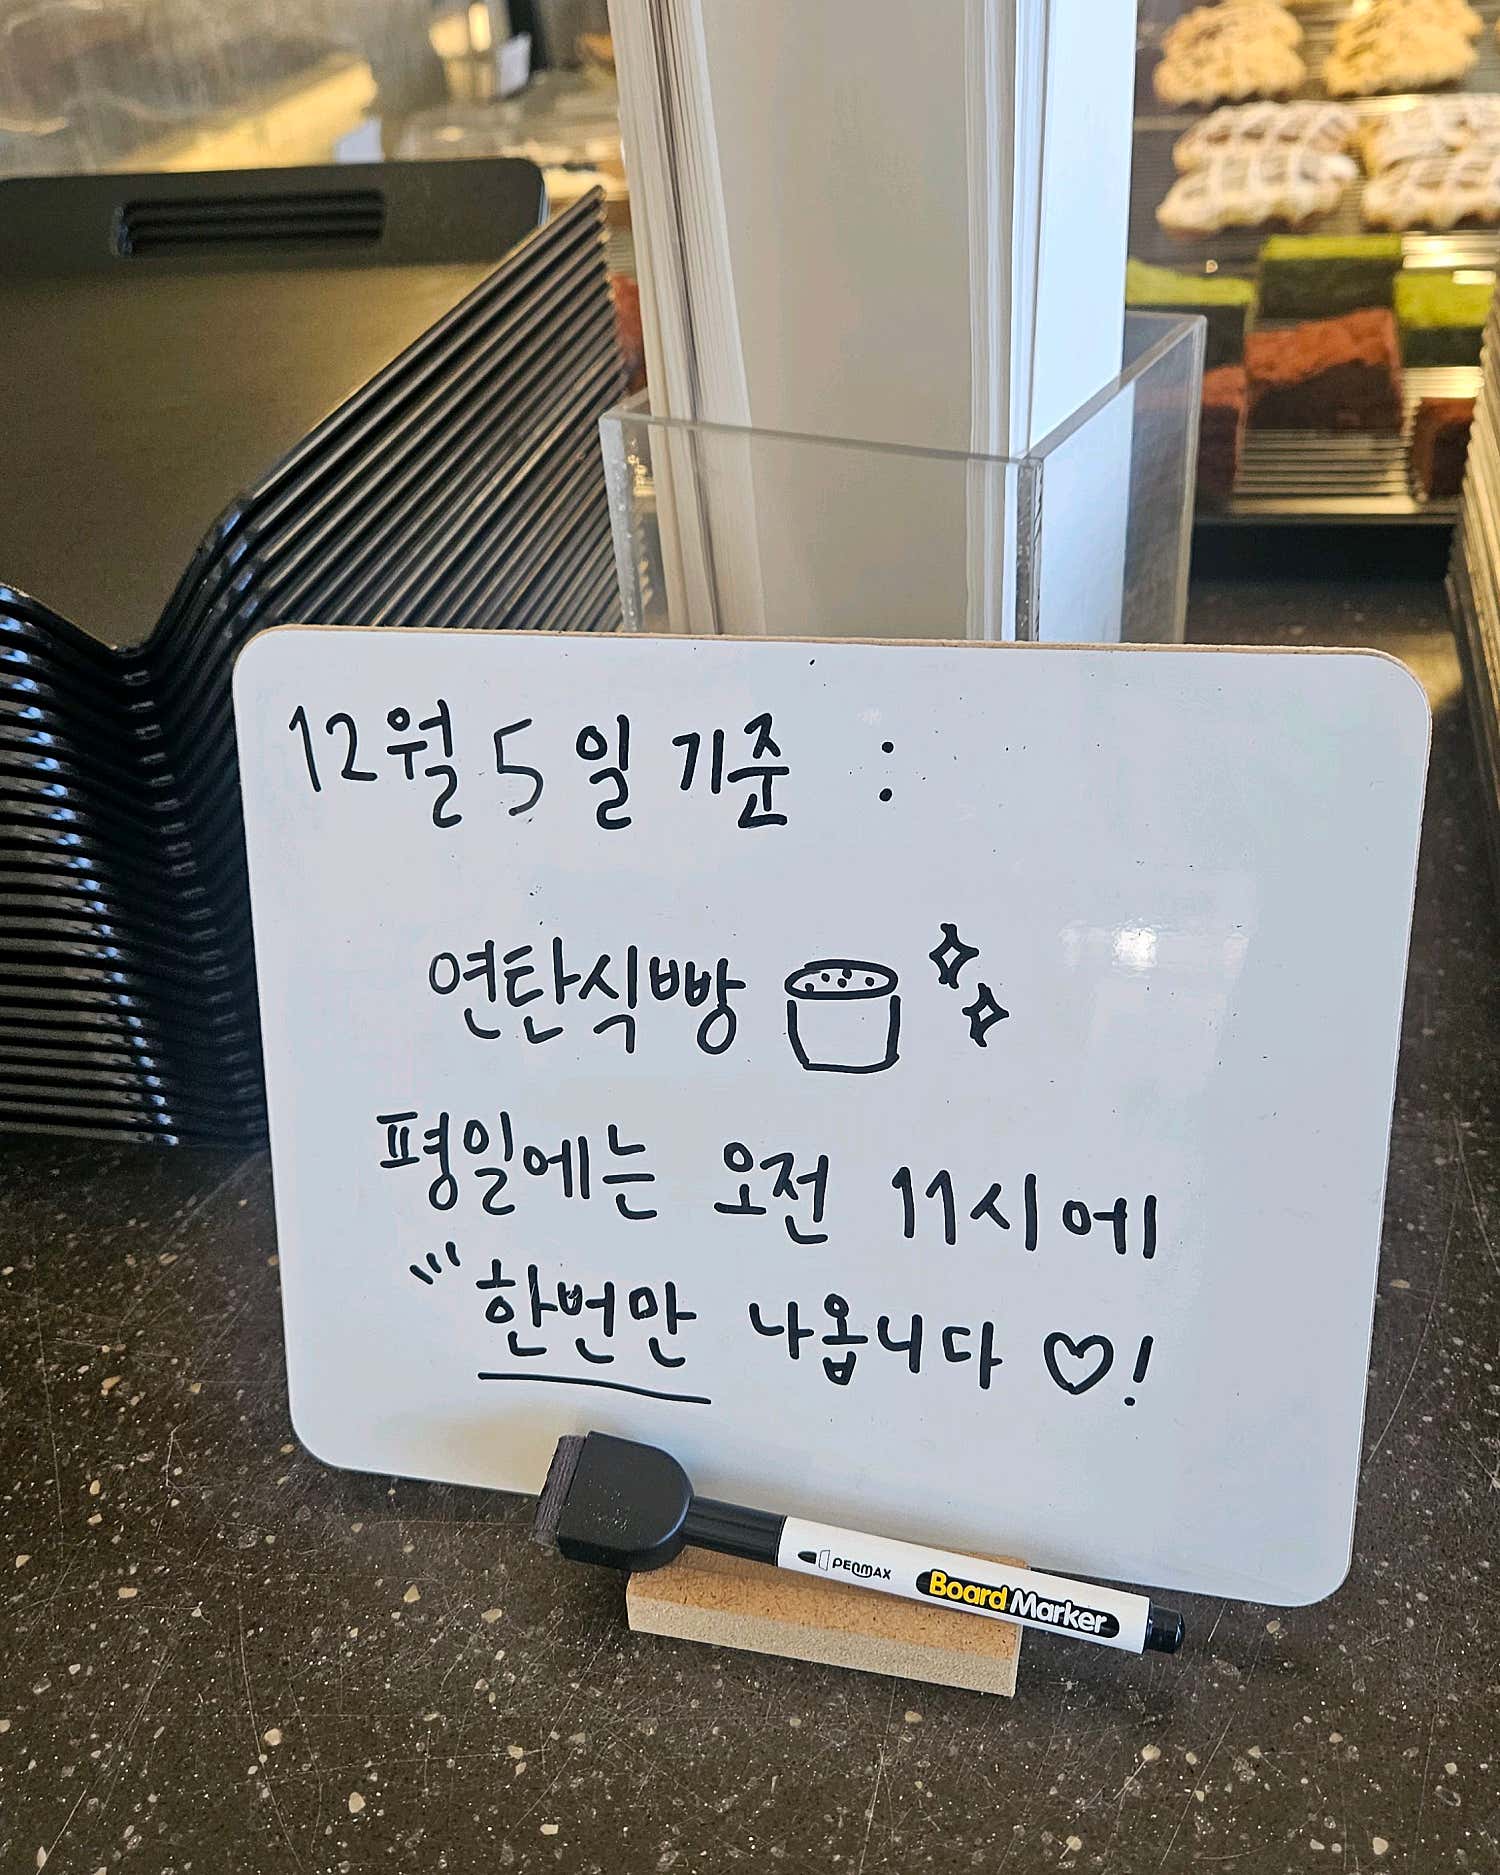 12월 5일 기준 :
연탄식빵
평일에는 오전 11시에
한번만 나옵니다 ♡!
PENMAX BoardMarker